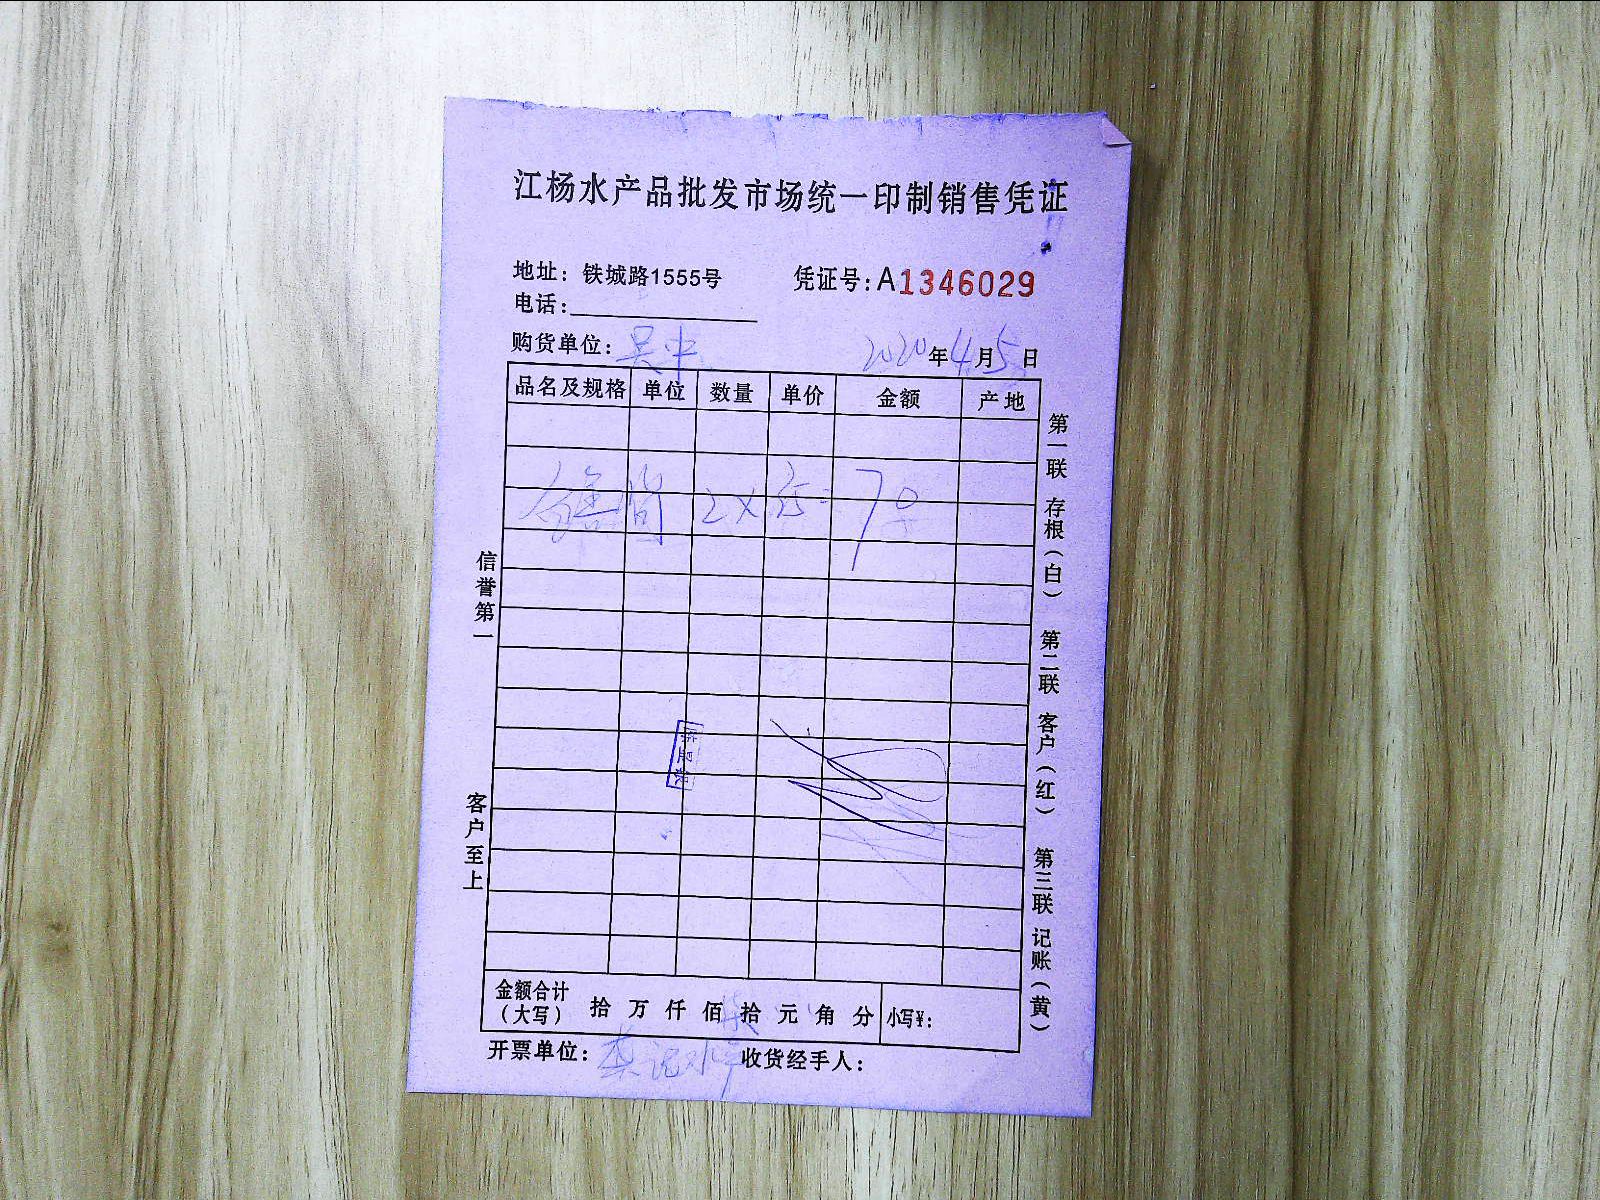 江杨水产品批发市场统一印制销售凭证
地址：铁城路1555号 凭证号：A1346029
电话：
购货单位：吴中 2020年4月5日
品名及规格 单位 数量 单价 金额 产地
2X 35 70
信誉第一
客户至上
第一联 存根（白） 第二联 客户（红） 第三联 记账（黄）
金额合计（大写） 拾 万 仟 佰 柒拾 元 角 分 小写¥：
开票单位： 记水产 收货经手人：